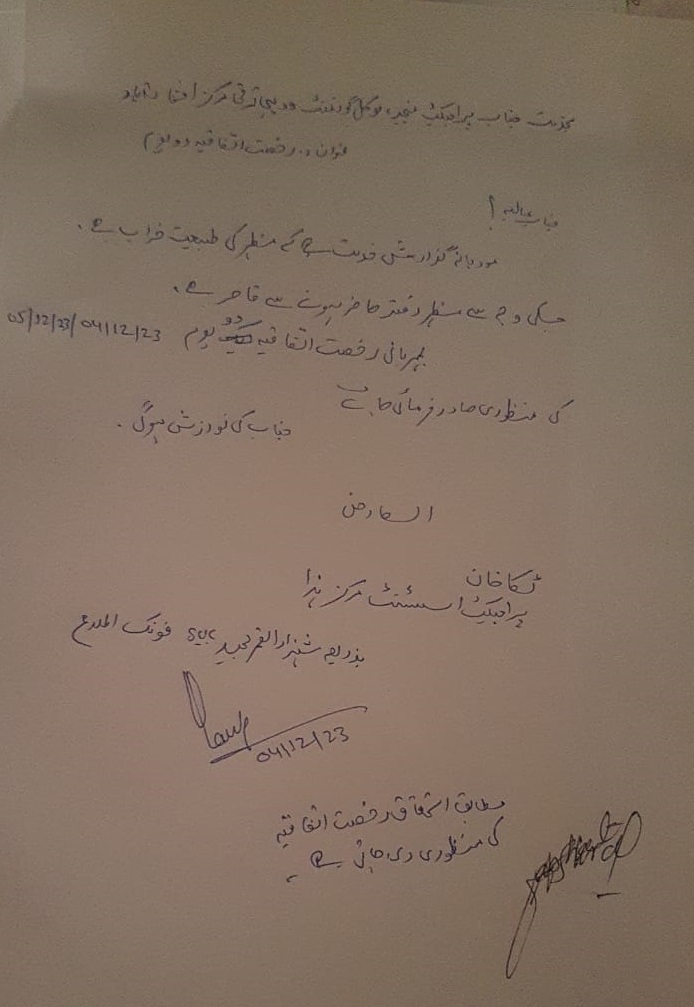 بخدمت جناب پراجیکٹ منیجر لوکل گورنمنٹ و دیہی ترقی مرکز
عنوان:۔ رخصت اتفاقیہ دو یوم
جناب عالیہ!
مودبانہ گزارش خدمت ہے کہ مظہر کی طبیعت خراب ہے۔
جسکی وجہ سے مظہر دفتر حاضر ہونے سے قاصر ہے۔
بمہربانی رخصت اتفاقیہ دو یوم 04/12/23 / 05/12/23
کی منظوری صادر فرمائی جائے
جناب کی نوازش ہوگی۔
العارض
ٹکا خان
پراجیکٹ اسسٹنٹ مرکز ہذا
بذریعہ شہزاد القمر مجید svc فونک اطلاع
04/12/23
مطابق استحقاق رخصت اتفاقیہ
کی منظوری دی جاتی ہے۔